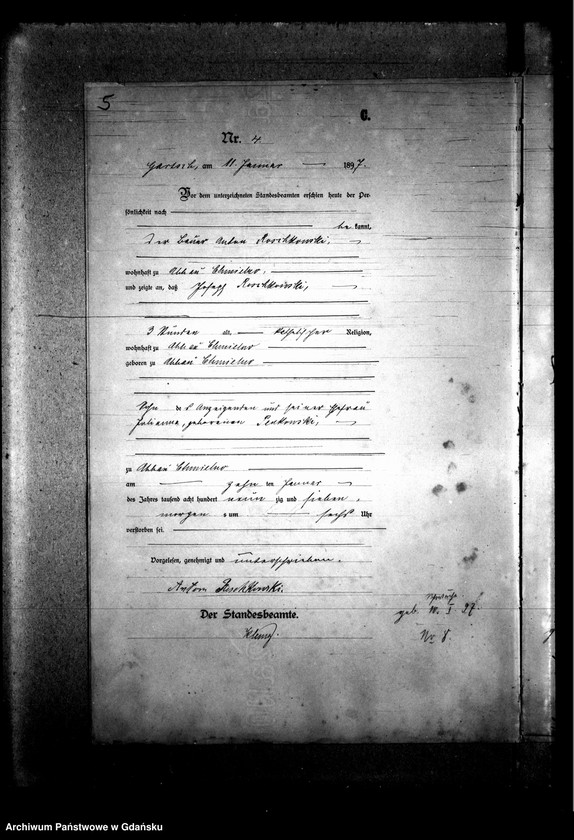 5
C.
Nr. 4.
am 11. Januar 1897.
Vor dem unterzeichneten Standesbeamten erschien heute der Per-
sönlichkeit nach
be kannt,
der Bauer Anton
wohnhaft zu Abbau Chmielno,
und zeigte an, daß Joseph
3 Stunden alt, katholischer Religion,
wohnhaft zu Abbau Chmielno
geboren zu Abbau Chmielno
Sohn des Anzeigenden und seiner Ehefrau
Julianna, geborenen
zu Abbau Chmielno
am zehn ten Januar
des Jahres tausend acht hundert neun zig und sieben,
morgens um sechs Uhr
verstorben sei.
Vorgelesen, genehmigt und unterschrieben.
Anton
Der Standesbeamte.
geb. 10. I. 97.
No 8.
Archiwum Państwowe w Gdańsku